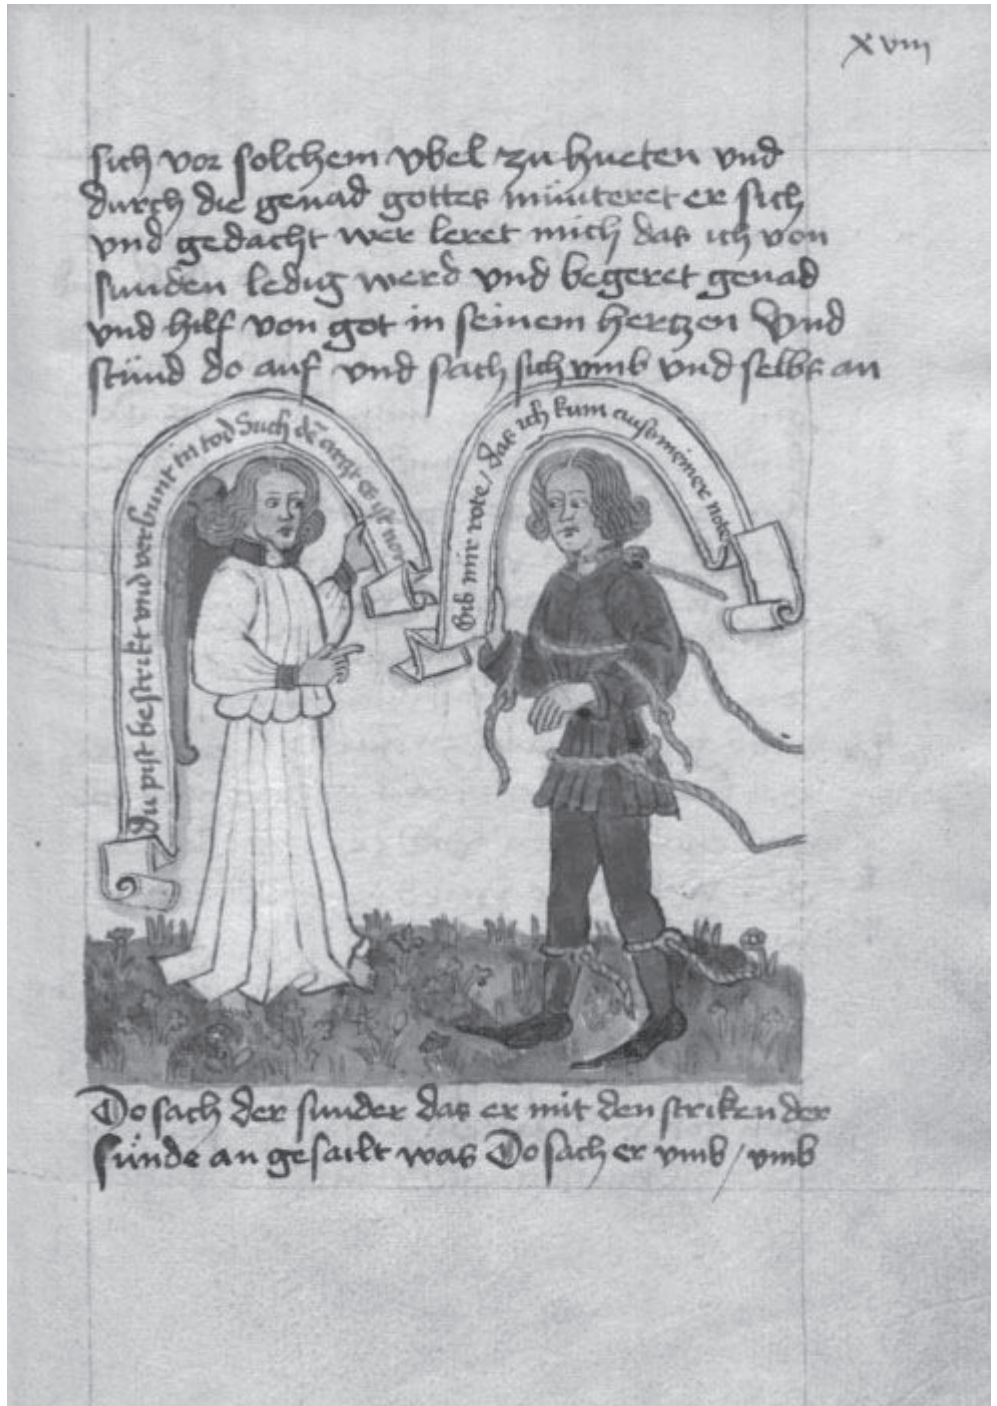 xviii
sich vor solchem vbel zu hueten vnd
durch die genad gottes münteret er sich
vnd gedacht wer leret mich das ich von
sunden ledig werd vnd begeret genad
vnd hilf von got in seinem hertzen Vnd
stünd do auf vnd sach sich vmb vnd selbs an
Du pist bestrikt vnd verbunt in tod Such dē arzt es ist not
Gib mir rote / das ich kum aus meiner note
Do sach der sunder das er mit den striken der
sünde an gesailt was Do sach er vmb / vmb